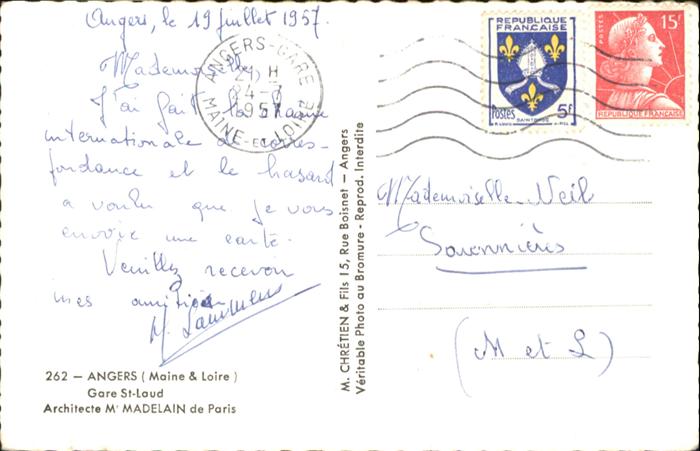 Angers, le 19 juillet 1957.
Mademoiselle,
J'ai fait la chaine
internationale de corres-
pondance et le hasard
a voulu que je vous
envoie une carte.
Veuillez recevoir
mes amitiés
262 — ANGERS ( Maine & Loire )
Gare St-Laud
Architecte Mr MADELAIN de Paris
M. CHRÉTIEN & Fils 15, Rue Boisnet — Angers
Véritable Photo au Bromure - Reprod. Interdite
ANGERS-GARE
24-7
1957
MAINE-ET-LOIRE
REPUBLIQUE
FRANCAISE
Postes 5F
SAINTONGE
POSTES 15F
REPUBLIQUE FRANÇAISE
Mademoiselle Neil
Savonnières
(M et L)